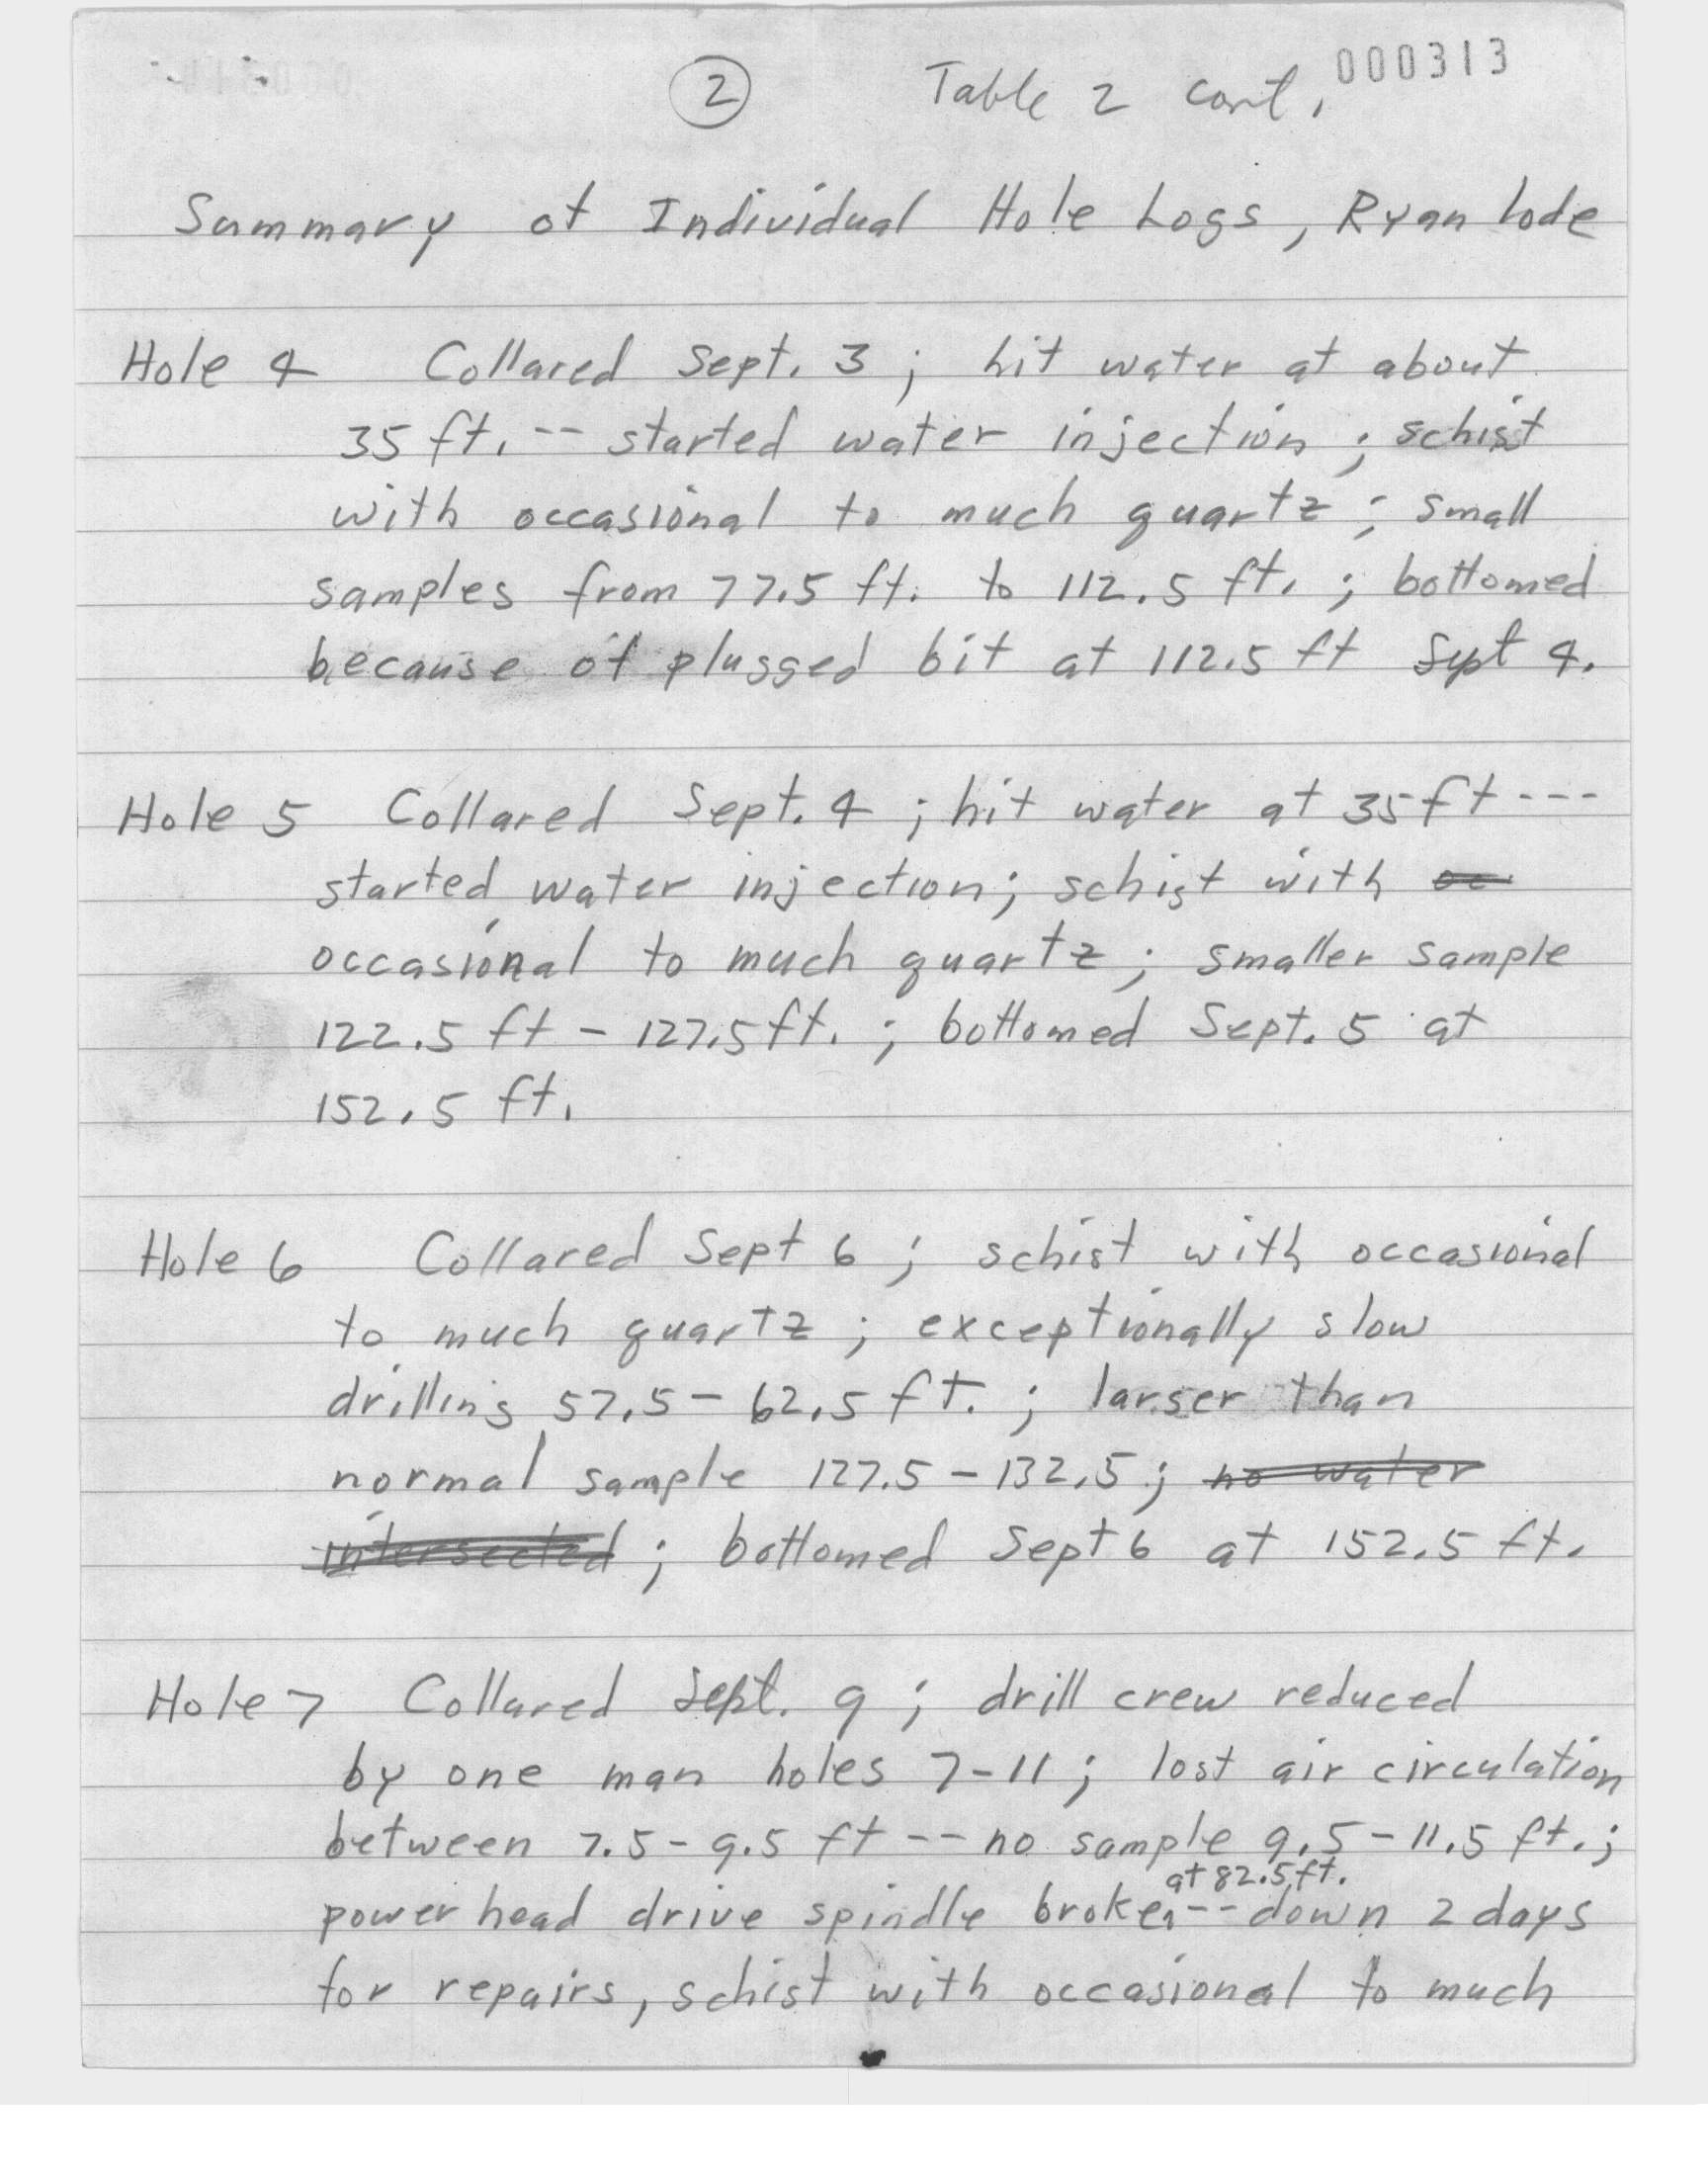 2 Table 2 cont. 000313
Summary of Individual Hole Logs, Ryan Lode
Hole 4 Collared Sept. 3 ; hit water at about
35 ft. -- started water injection ; schist
with occasional to much quartz ; small
samples from 77.5 ft. to 112.5 ft. ; bottomed
because of plugged bit at 112.5 ft Sept 4.
Hole 5 Collared Sept. 4 ; hit water at 35 ft ---
started water injection; schist with oc
occasional to much quartz ; smaller sample
122.5 ft - 127.5 ft. ; bottomed Sept. 5 at
152.5 ft.
Hole 6 Collared Sept 6 ; schist with occasional
to much quartz ; exceptionally slow
drilling 57.5 - 62.5 ft. ; larger than
normal sample 127.5 - 132.5 ; no water
intersected ; bottomed Sept 6 at 152.5 ft.
Hole 7 Collared Sept. 9 ; drill crew reduced
by one man holes 7-11 ; lost air circulation
between 7.5 - 9.5 ft -- no sample 9.5 - 11.5 ft. ;
at 82.5 ft.
power head drive spindle broken -- down 2 days
for repairs, schist with occasional to much